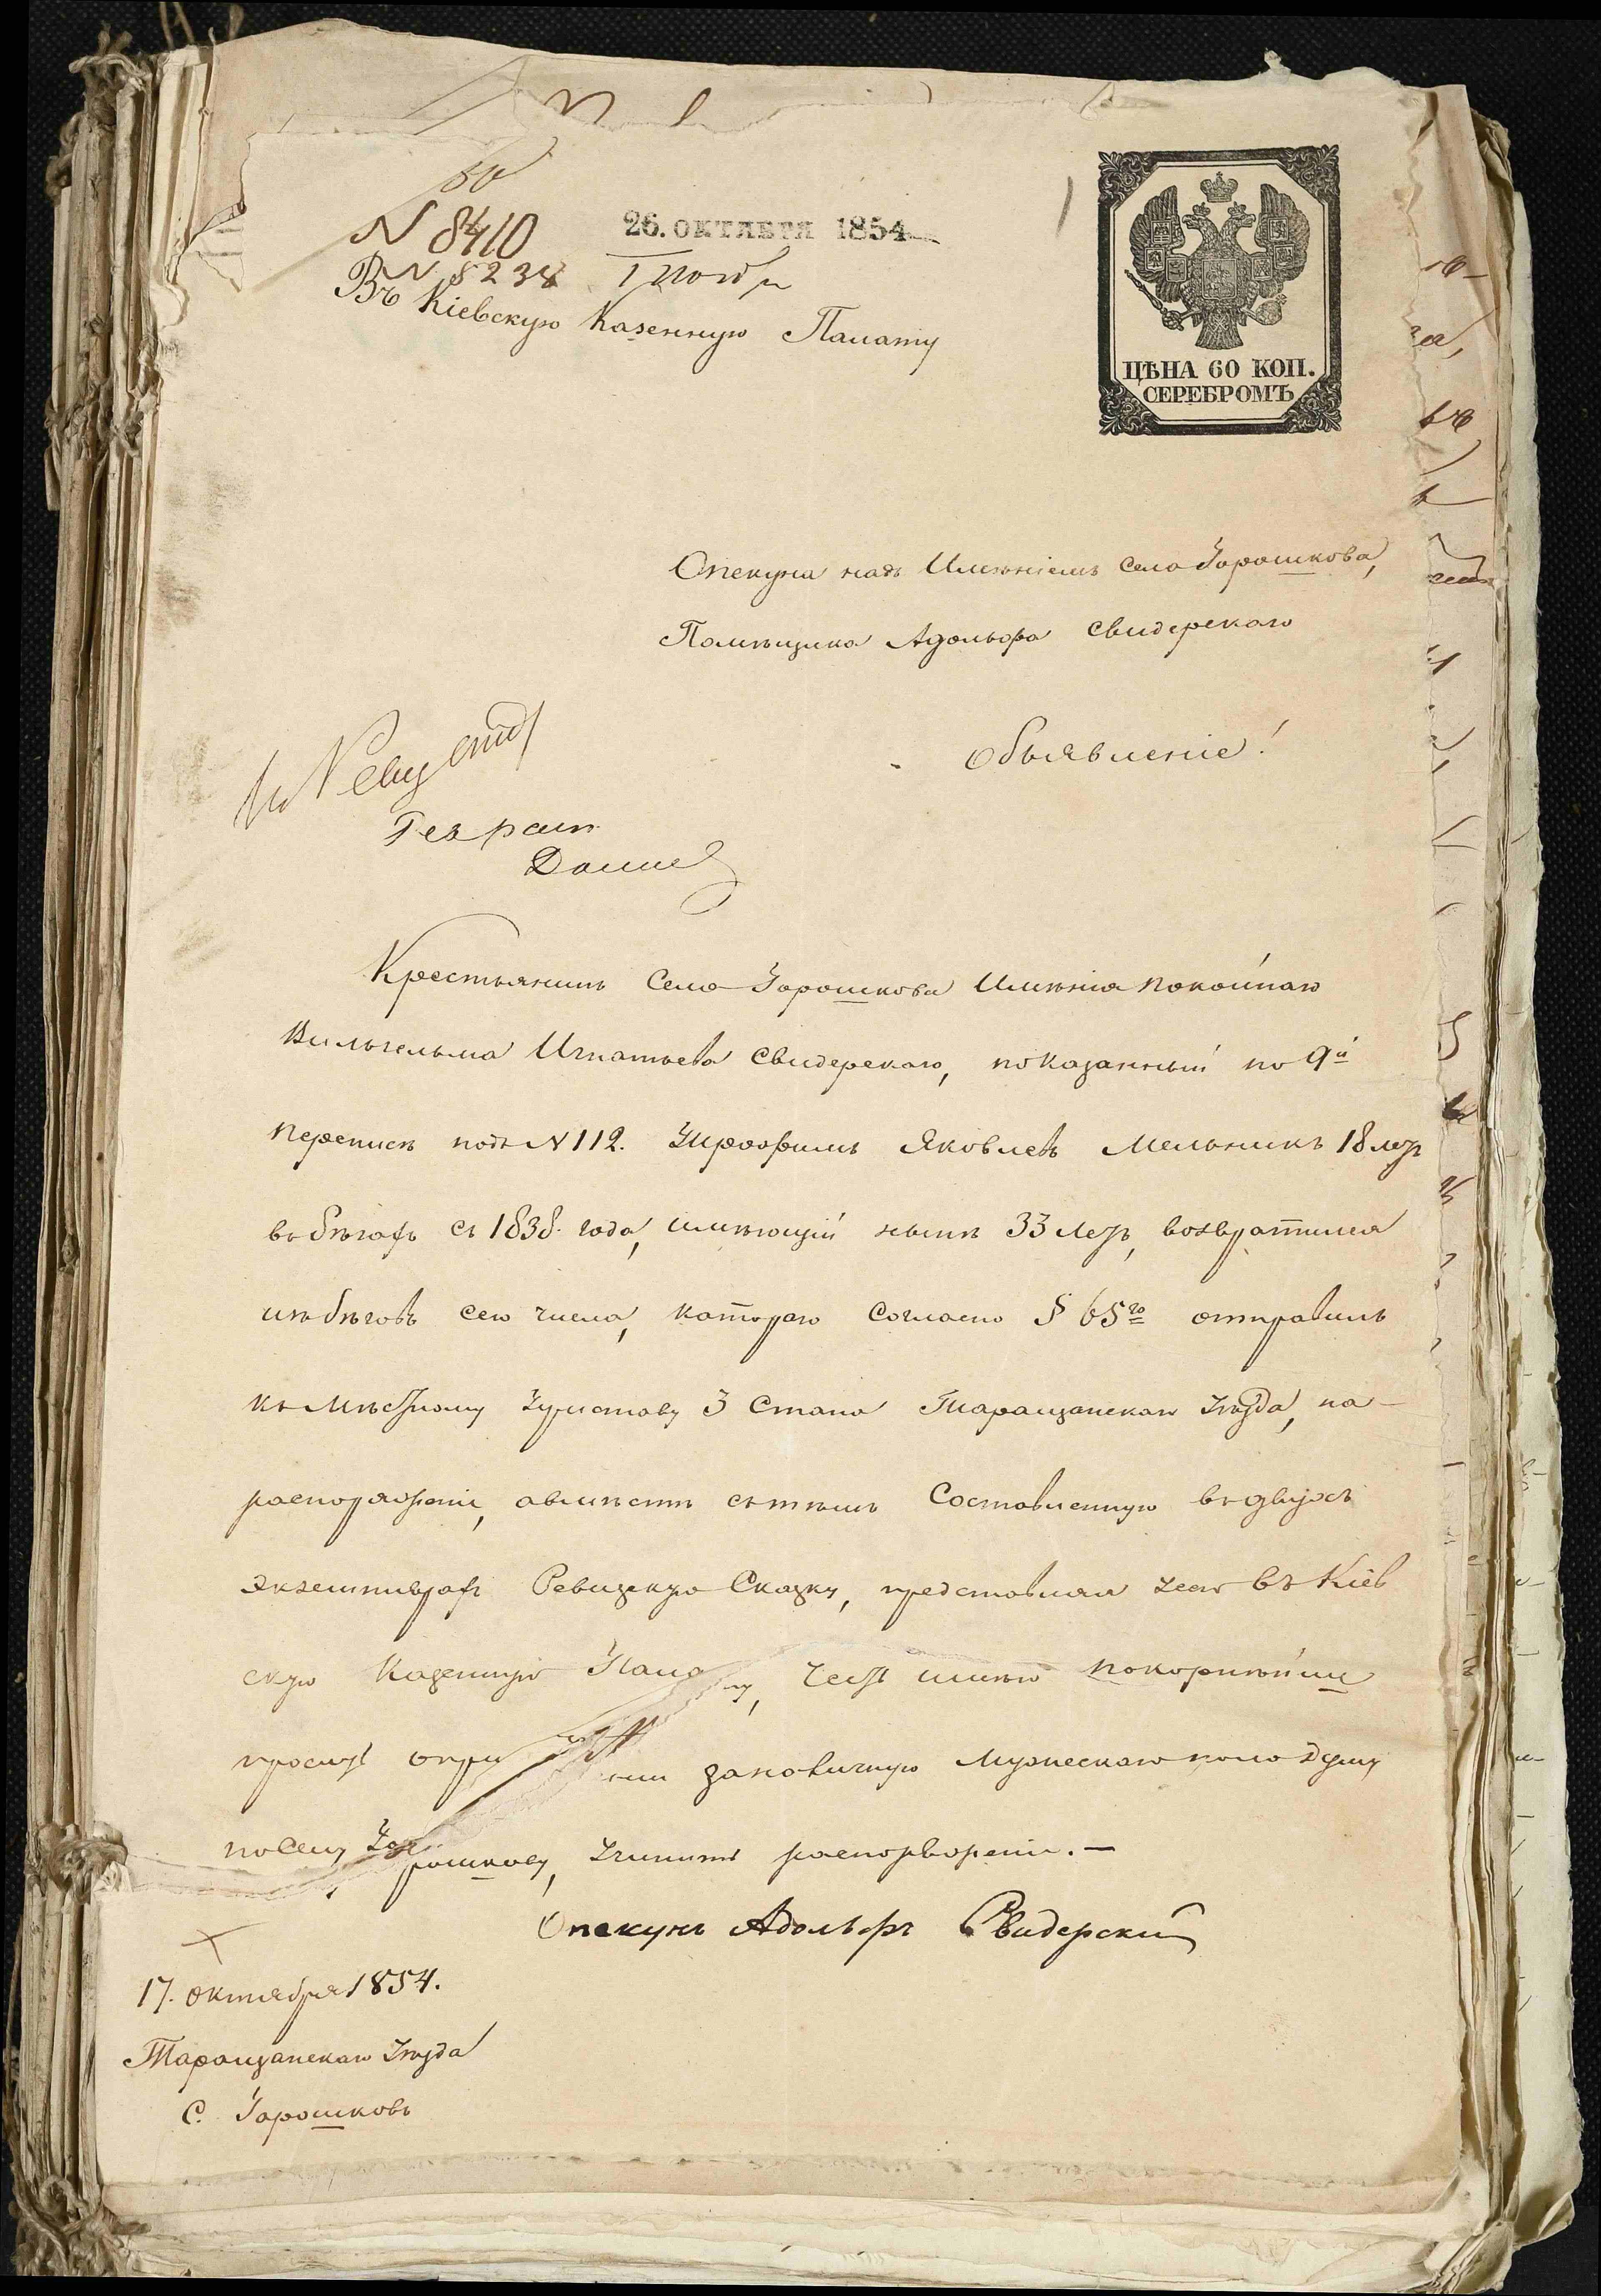 N 8410
26. ОКТЯБРЯ 1854
N 8238 1 Нояб
Въ Кіевскую Казенную Палату
ЦѢНА 60 КОП.
СЕРЕБРОМЪ
Опекуна надъ Имѣніемъ села Горошкова,
Помѣщика Адольфа Свидерскаго
Объявленіе!
Крестьянинъ Села Горошкова Имѣнія покойнаго
Вильгельма Игнатьева Свидерскаго, показанный по 9й
переписѣ подъ N 112. Трофимъ Яковлевъ Мельникъ 18 летъ
въ бѣгахъ съ 1838. года, имѣющій нынѣ 33 Летъ, возвратился
изъ бѣговъ сего числа, котораго Согласно § 65го отправилъ
къ Мѣстному Приставу 3 Стана Таращанскаго Уѣзда, на
распоряженіе, авмѣсти сътѣмъ Составленную въ двухъ
экземплярахъ Ревизскую Сказку, представляя въ Кіев
скую Казенную Пала ту, честь имѣю покорнѣйше
просить опри заковичную Мужескаго пола Душу
по Селу Горошкову, Учинить распоряженіе. —
Опекунъ Адольфъ Свидерский
17. октября 1854.
Таращанскаго Уѣзда
С. Горошковъ